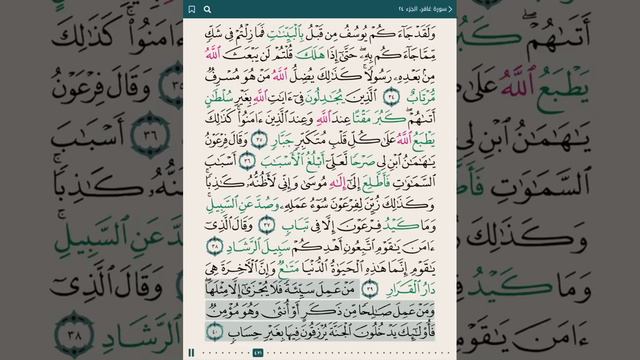 سورة غافر، الجزء ٢٤
وَلَقَدْ جَآءَكُمْ يُوسُفُ مِن قَبْلُ بِٱلْبَيِّنَٰتِ فَمَا زِلْتُمْ فِى شَكٍّ
مِّمَّا جَآءَكُم بِهِۦ حَتَّىٰٓ إِذَا هَلَكَ قُلْتُمْ لَن يَبْعَثَ ٱللَّهُ
مِنۢ بَعْدِهِۦ رَسُولًا كَذَٰلِكَ يُضِلُّ ٱللَّهُ مَنْ هُوَ مُسْرِفٌ
مُّرْتَابٌ ٣٤ ٱلَّذِينَ يُجَٰدِلُونَ فِىٓ ءَايَٰتِ ٱللَّهِ بِغَيْرِ سُلْطَٰنٍ
أَتَىٰهُمْ كَبُرَ مَقْتًا عِندَ ٱللَّهِ وَعِندَ ٱلَّذِينَ ءَامَنُوا۟ كَذَٰلِكَ
يَطْبَعُ ٱللَّهُ عَلَىٰ كُلِّ قَلْبِ مُتَكَبِّرٍ جَبَّارٍ ٣٥ وَقَالَ فِرْعَوْنُ
يَٰهَٰمَٰنُ ٱبْنِ لِى صَرْحًا لَّعَلِّىٓ أَبْلُغُ ٱلْأَسْبَٰبَ ٣٦ أَسْبَٰبَ
ٱلسَّمَٰوَٰتِ فَأَطَّلِعَ إِلَىٰٓ إِلَٰهِ مُوسَىٰ وَإِنِّى لَأَظُنُّهُۥ كَٰذِبًا
وَكَذَٰلِكَ زُيِّنَ لِفِرْعَوْنَ سُوٓءُ عَمَلِهِۦ وَصُدَّ عَنِ ٱلسَّبِيلِ
وَمَا كَيْدُ فِرْعَوْنَ إِلَّا فِى تَبَابٍ ٣٧ وَقَالَ ٱلَّذِىٓ
ءَامَنَ يَٰقَوْمِ ٱتَّبِعُونِ أَهْدِكُمْ سَبِيلَ ٱلرَّشَادِ ٣٨
يَٰقَوْمِ إِنَّمَا هَٰذِهِ ٱلْحَيَوٰةُ ٱلدُّنْيَا مَتَٰعٌ وَإِنَّ ٱلْءَاخِرَةَ هِىَ
دَارُ ٱلْقَرَارِ ٣٩ مَنْ عَمِلَ سَيِّئَةً فَلَا يُجْزَىٰٓ إِلَّا مِثْلَهَا
وَمَنْ عَمِلَ صَٰلِحًا مِّن ذَكَرٍ أَوْ أُنثَىٰ وَهُوَ مُؤْمِنٌ
فَأُو۟لَٰٓئِكَ يَدْخُلُونَ ٱلْجَنَّةَ يُرْزَقُونَ فِيهَا بِغَيْرِ حِسَابٍ ٤٠
٤٧١